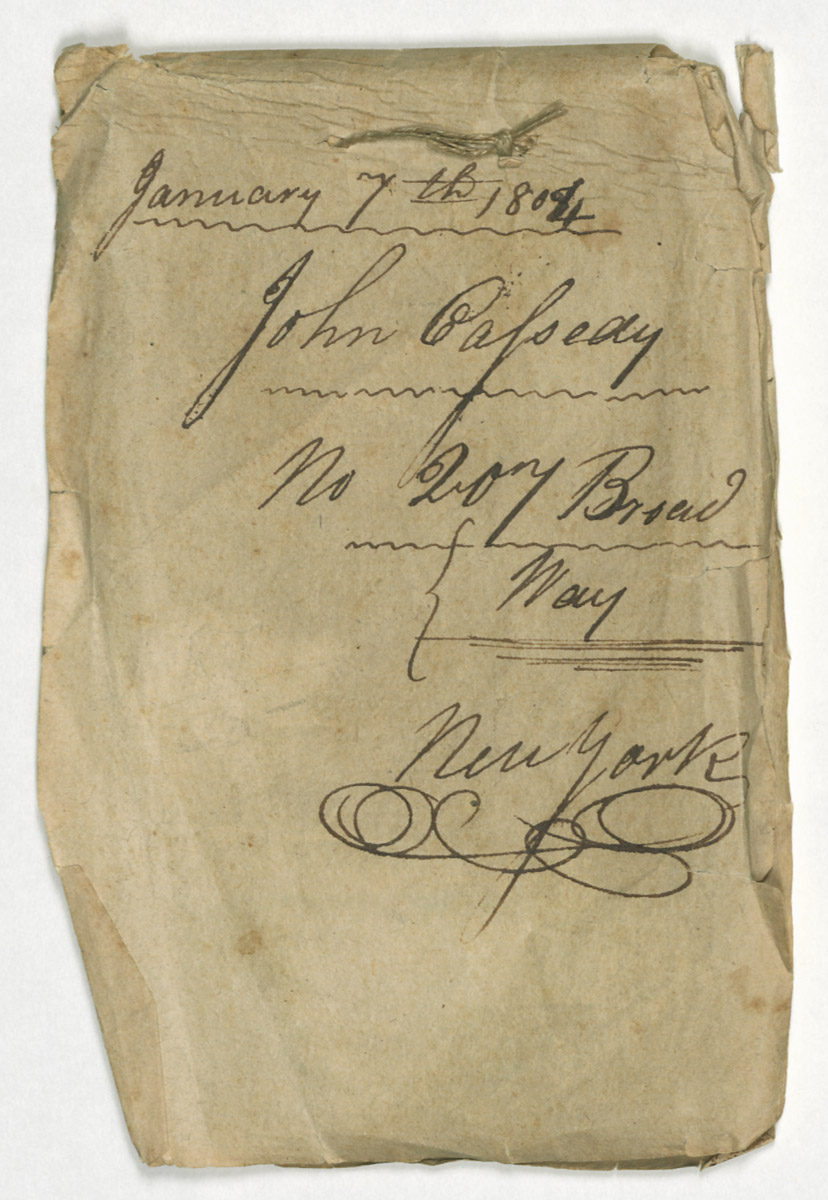 January 7th 1804
John Caſsedy
No 207 Broad
Way
New York